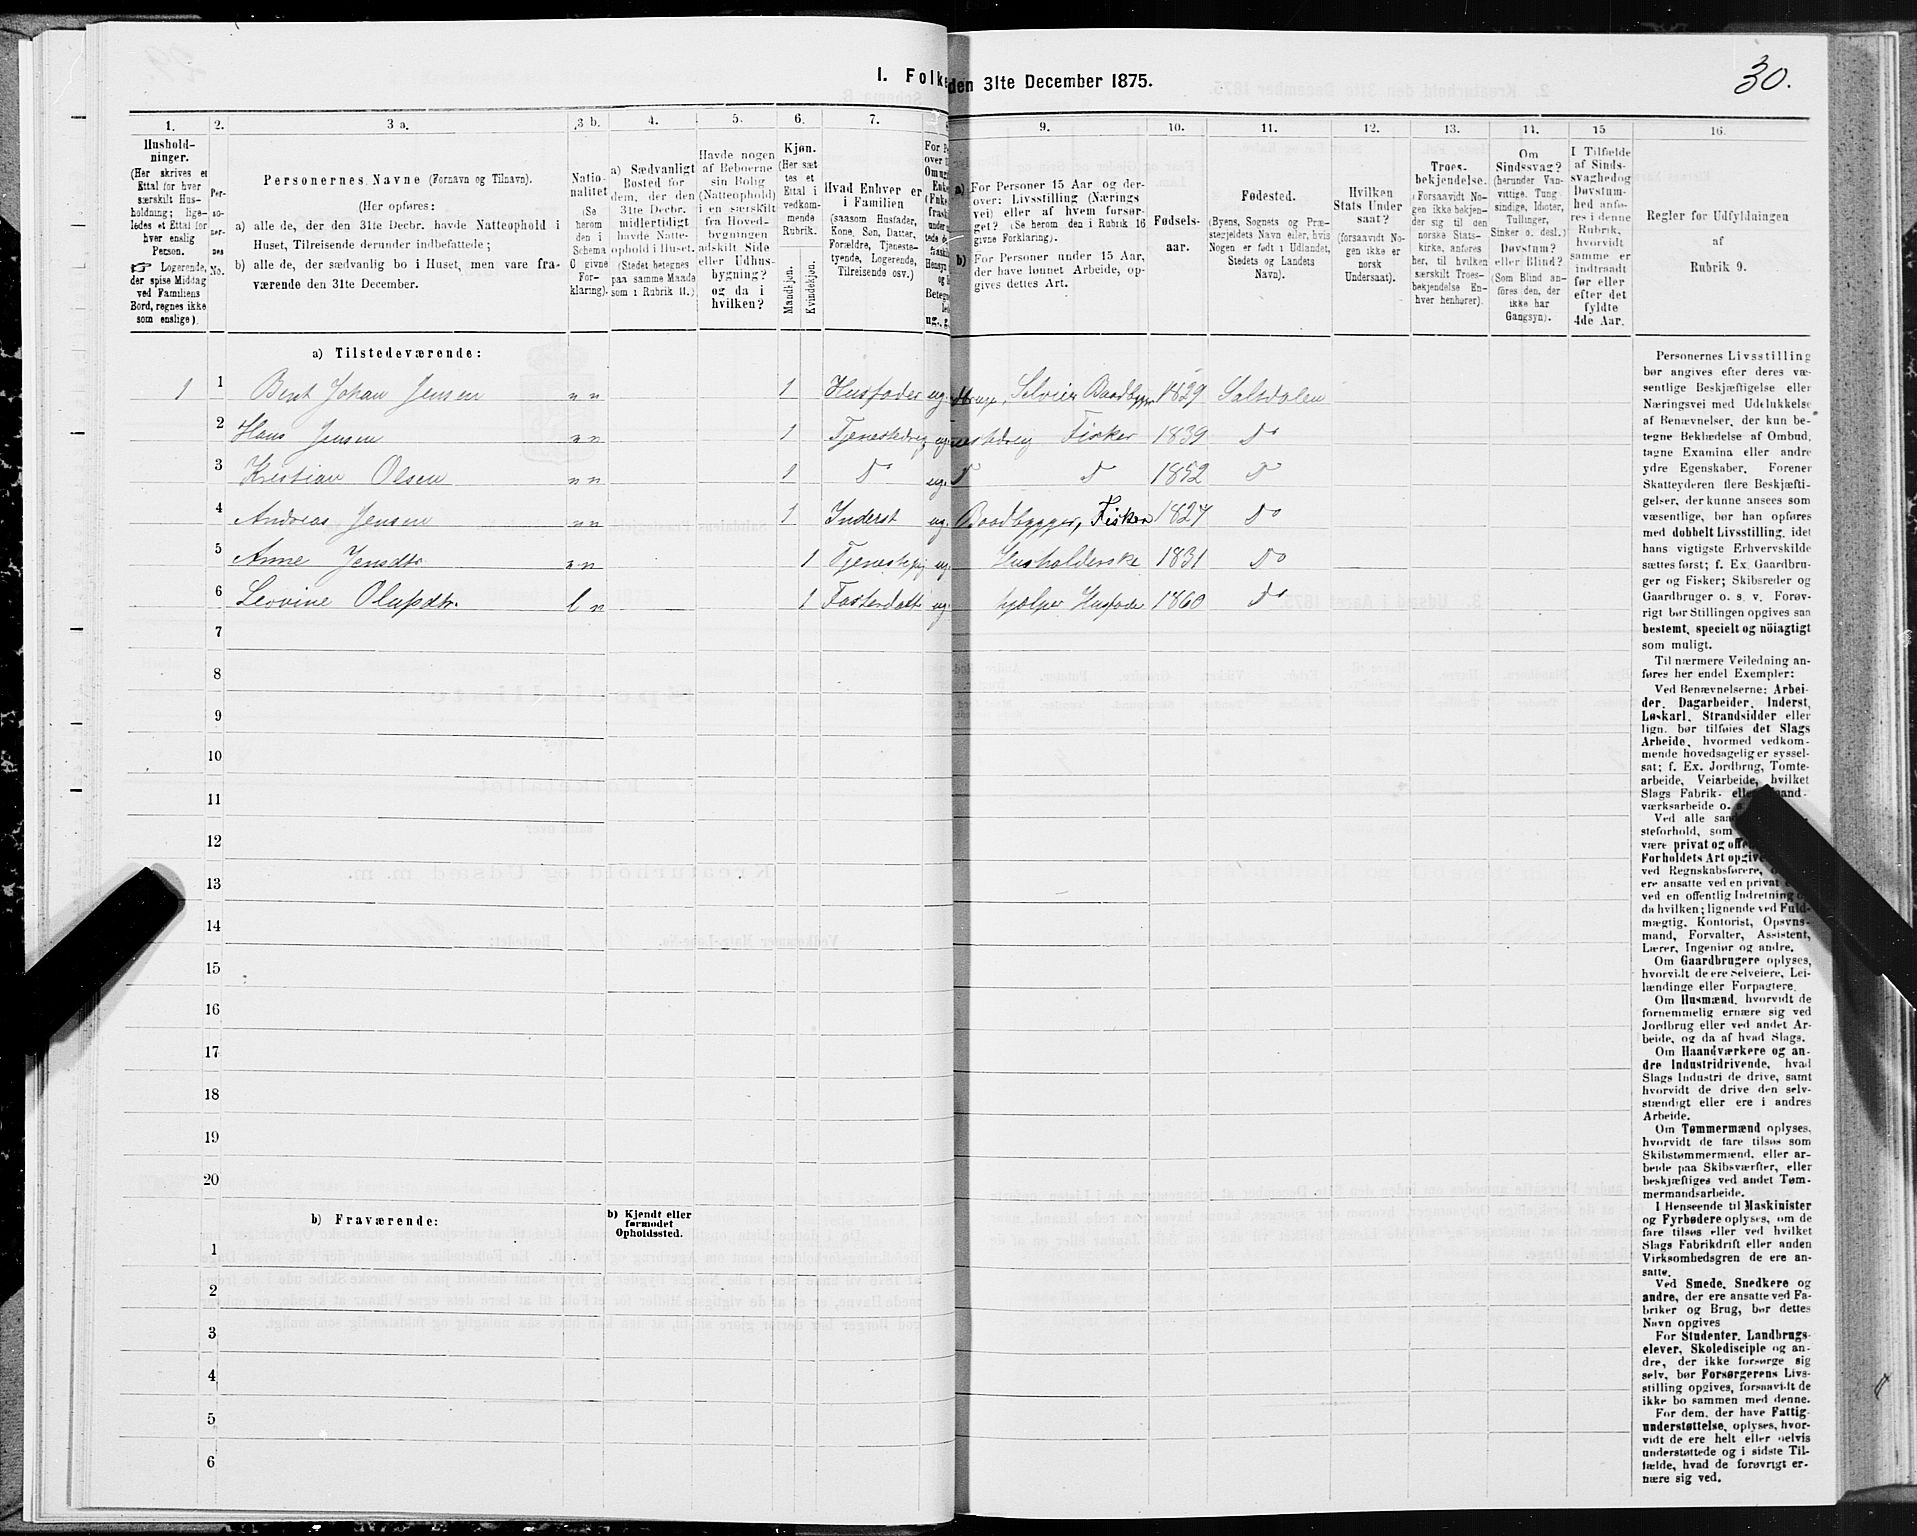 30.
I. Folke den 31te December 1875.
1. 2. 3 a. 3 b. 4. 5. 6. 7. 9. 10. 11. 12. 13. 14. 15 16.
Hushold-
ninger.
(Her skrives et
Ettal for hver
særskilt Hus-
holdning; lige-
ledes et Ettal for
hver enslig
Person.
☞ Logerende,
der spise Middag
ved Familiens
Bord, regnes ikke
som enslige).
Per-
so-
ner-
nes
No.
Personernes Navne (Fornavn og Tilnavn).
(Her opføres:
a) alle de, der den 31te Decbr. havde Natteophold i
Huset, Tilreisende derunder indbefattede;
b) alle de, der sædvanlig bo i Huset, men vare fra-
værende den 31te December.
Natio-
nalitet
(Se
herom
den i
Schema
C givne
For-
klaring).
a) Sædvanligt
Bosted for
dem, der den
31te Decbr.
midlertidigt
havde Natte-
ophold i Huset.
(Stedet betegnes
paa samme Maade
som i Rubrik II.)
Havde nogen
af Beboerne
sin Bolig
(Natteophold)
i en særskilt
fra Hoved-
bygningen
adskilt Side
eller Udhus-
bygning?
og da i
hvilken?
Kjøn.
(Her sæt
tes et
Ettal i
vedkom-
mende
Rubrik.
Mandkjøn.
Kvindekjøn.
Hvad Enhver er
i Familien
(saasom Husfader,
Kone, Søn, Datter,
Forældre, Tjeneste-
tyende, Logerende,
Tilreisende osv.)
a) For Personer 15 Aar og der-
over: Livsstilling (Nærings
vei) eller af hvem forsør-
get? (Se herom den i Rubrik 16
givne Forklaring).
b) For Personer under 15 Aar,
der have lønnet Arbeide, op-
gives dettes Art.
Fødsels-
aar.
Fødested.
(Byens, Sognets og Præ-
stegjeldets Navn eller, hvis
Nogen er født i Udlandet,
Stedets og Landets
Navn).
Hvilken
Stats Under
saat?
(forsaavidt No-
gen ikke er
norsk
Undersaat).
Troes-
bekjendelse.
(Forsaavidt No-
gen ikke bekjen-
der sig til den
norske Stats-
kirke, anføres
her, til hvilken
særskilt Troes-
bekjendelse En-
hver henhører).
Om
Sindssvag?
(herunder Van-
vittige, Tung-
sindige, Idioter,
Tullinger,
Sinker o. desl.)
Døvstum?
eller Blind?
(Som Blind an-
føres den, der
ikke har
Gangsyn).
I Tilfælde
af Sinds-
svaghed og
Døvstum-
hed anfø-
res i denne
Rubrik,
hvorvidt
samme er
indtraadt
før eller
efter det
fyldte
4de Aar.
Regler for Udfyldningen
af
Rubrik 9.
a) Tilstedeværende:
1 1 Bent Johan Jensen n n 1 Husfader ug. Selveier Baadbygger 1829 Saltdalen
2 Hans Jensen n n 1 Tjenestedreng ug. Fisker 1839 Do
3 Kristian Olsen n n 1 Do ug. D D 1852 D
4 Andreas Jensen n n 1 Inderst ug. Baadbygger, Fisker 1827 Do
5 Anne Jensdtr n n 1 Tjenestepig ug. Husholderske 1831 Do
6 Leovine Olufsdtr. l n 1 Fosterdatt ug. hjælper Husfader 1860 Do
7
8
9
10
11
12
13
14
15
16
17
18
19
20
b) Fraværende:
b) Kjendt eller
formodet
Opholdssted.
1
2
3
4
5
6
Personernes Livsstilling
bør angives efter deres væ-
sentlige Beskjæftigelse eller
Næringsvei med Udelukkelse
af Benævnelser, der kun be-
tegne Beklædelse af Ombud,
tagne Examina eller andre
ydre Egenskaber. Forener
Skatteyderen flere Beskjæfti-
gelser, der kunne ansees som
væsentlige, bør han opføres
med dobbelt Livsstilling, idet
hans vigtigste Erhvervskilde
sættes først; f. Ex. Gaardbru-
ger og Fisker; Skibsreder og
Gaardbruger o. s. v. Forøv-
rigt bør Stillingen opgives saa
bestemt, specielt og nöiagtigt
som muligt.
Til nærmere Veiledning an-
føres her endel Exempler:
Ved Benævnelserne: Arbei-
der, Dagarbeider, Inderst,
Løskarl, Strandsidder eller
lign. bør tilføies det Slags
Arbeide, hvormed vedkom-
mende hovedsagelig er syssel-
sat; f. Ex. Jordbrug, Tomte-
arbeide, Veiarbeide, hvilket
Slags Fabrik- eller Haand-
værksarbeide o. s.
Ved alle saa
steforhold, som
være privat og offe
Forholdets Art opgive
ved Regnskabsførere,
ere ansatte ved en privat
ved en offentlig Indretning
da hvilken; lignende ved Fuld-
mægtig, Kontorist, Opsyns-
mand, Forvalter, Assistent,
Lærer, Ingeniør og andre.
Om Gaardbrugere oplyses,
hvorvidt de ere Selveiere, Lei-
lændinge eller Forpagtere.
Om Husmænd, hvorvidt de
fornemmelig ernære sig ved
Jordbrug eller ved andet Ar-
beide, og da af hvad Slags.
Om Haandværkere og an-
dre Industridrivende, hvad
Slags Industri de drive, samt
hvorvidt de drive den selv-
stændigt eller ere i andres
Arbeide.
Om Tømmermænd oplyses,
hvorvidt de fare tilsøs som
Skibstømmermænd, eller ar-
beide paa Skibsværfter, eller
beskjæftiges ved andet Tøm-
mermandsarbeide.
I Henseende til Maskinister
og Fyrbødere oplyses, om de
fare tilsøs eller ved hvilket
Slags Fabrikdrift eller anden
Virksomhedsgren de ere an-
satte.
Ved Smede, Snedkere og
andre, der ere ansatte ved Fa-
briker og Brug, bør dettes
Navn opgives
For Studenter, Landbrugs-
elever, Skoledisciple og an-
dre, der ikke forsørge sig
selv, bør Forsørgerens Livs-
stilling opgives, forsaavidt de
ikke bo sammen med denne.
For dem, der have Fattig-
understøttelse, oplyses, hvor-
vidt de ere helt eller delvis
understøttede og i sidste Til-
fælde, hvad de forøvrigt er-
nære sig ved.